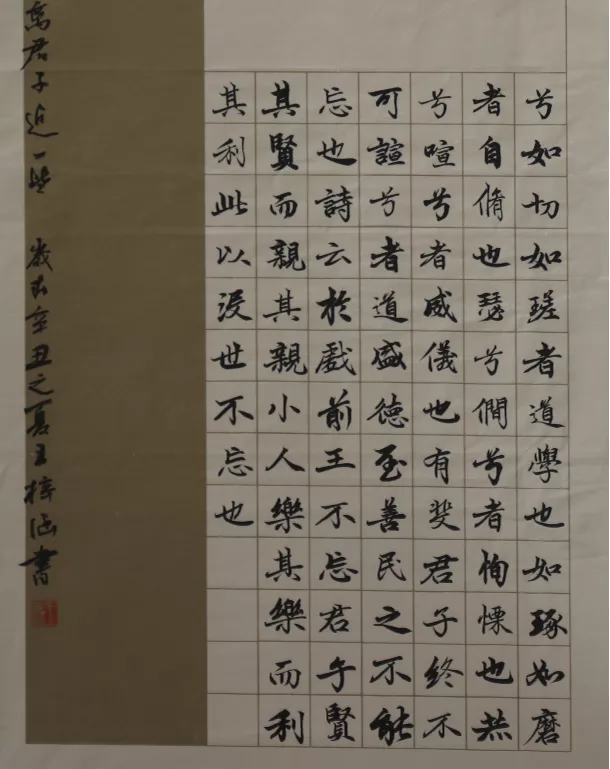 兮如切如瑳者道學也如琢如磨
者自脩也瑟兮僩兮者恂慄也赫
兮喧兮者威儀也有斐君子終不
可諠兮者道盛德至善民之不能
忘也詩云於戲前王不忘君子賢
其賢而親其親小人樂其樂而利
其利此以沒世不忘也
君子近一些 歲在辛丑之夏王梓涵書